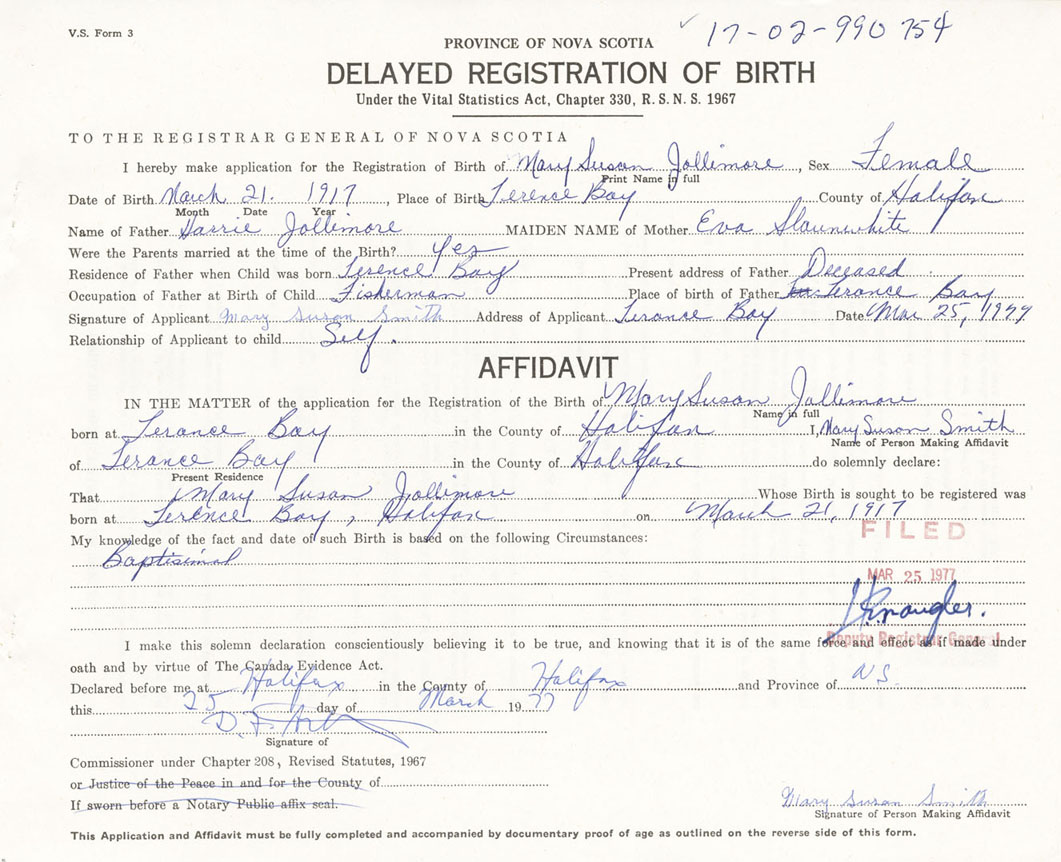 V.S. Form 3
17-02-990 754
PROVINCE OF NOVA SCOTIA
DELAYED REGISTRATION OF BIRTH
Under the Vital Statistics Act, Chapter 330, R.S.N.S. 1967
TO THE REGISTRAR GENERAL OF NOVA SCOTIA
I hereby make application for the Registration of Birth of Mary Susan Jollimore, Sex Female
Print Name in full
Date of Birth March 21. 1917, Place of Birth Terence Bay County of Halifax
Month Date Year
Name of Father Harrie Jollimore MAIDEN NAME of Mother Eva Slaunwhite
Were the Parents married at the time of the Birth? yes
Residence of Father when Child was born Terence Bay Present address of Father Deceased
Occupation of Father at Birth of Child Fisherman Place of birth of Father Terance Bay
Signature of Applicant Mary Susan Smith Address of Applicant Terance Bay Date Mar 25, 1977
Relationship of Applicant to child Self.
AFFIDAVIT
IN THE MATTER of the application for the Registration of the Birth of Mary Susan Jollimore
Name in full
born at Terance Bay in the County of Halifax I, Mary Susan Smith
Name of Person Making Affidavit
of Terance Bay in the County of Halifax do solemnly declare:
Present Residence
That Mary Susan Jollimore Whose Birth is sought to be registered was
born at Terence Bay, Halifax on March 21, 1917
My knowledge of the fact and date of such Birth is based on the following Circumstances:
Baptisimal
FILED
MAR 25 1977
Deputy Registrar General
I make this solemn declaration conscientiously believing it to be true, and knowing that it is of the same force and effect as if made under
oath and by virtue of The Canada Evidence Act.
Declared before me at Halifax in the County of Halifax and Province of N.S.
this 25 day of March 1977
Signature of
Commissioner under Chapter 208, Revised Statutes, 1967
or Justice of the Peace in and for the County of
If sworn before a Notary Public affix seal.
Mary Susan Smith
Signature of Person Making Affidavit
This Application and Affidavit must be fully completed and accompanied by documentary proof of age as outlined on the reverse side of this form.